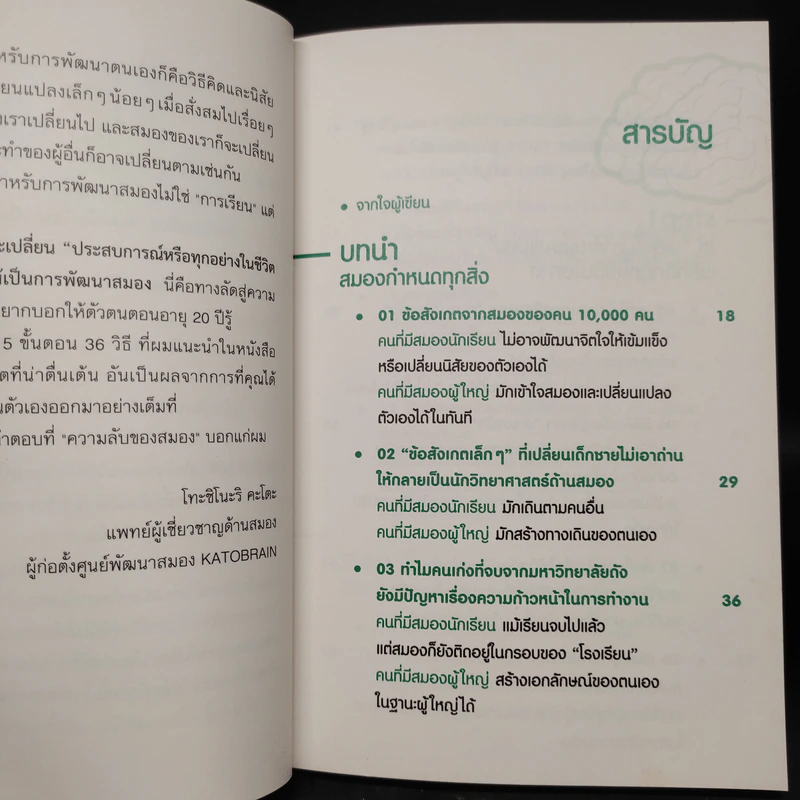 หรับการพัฒนาตนเองก็คือวิธีคิดและนิสัย
ยนแปลงเล็กๆ น้อยๆ เมื่อสั่งสมไปเรื่อยๆ
งเราเปลี่ยนไป และสมองของเราก็จะเปลี่ยน
ะทำของผู้อื่นก็อาจเปลี่ยนตามเช่นกัน
าหรับการพัฒนาสมองไม่ใช่ "การเรียน" แต่
ะเปลี่ยน "ประสบการณ์หรือทุกอย่างในชีวิต
เป็นการพัฒนาสมอง นี่คือทางลัดสู่ความ
ยากบอกให้ตัวตนตอนอายุ 20 ปีรู้
5 ขั้นตอน 36 วิธี ที่ผมแนะนำในหนังสือ
ตที่น่าตื่นเต้น อันเป็นผลจากการที่คุณได้
นตัวเองออกมาอย่างเต็มที่
าตอบที่ "ความลับของสมอง" บอกแก่ผม
โทะชิโนะริ คะโตะ
แพทย์ผู้เชี่ยวชาญด้านสมอง
ผู้ก่อตั้งศูนย์พัฒนาสมอง KATOBRAIN
สารบัญ
• จากใจผู้เขียน
บทนำ
สมองกำหนดทุกสิ่ง
• 01 ข้อสังเกตจากสมองของคน 10,000 คน 18
คนที่มีสมองนักเรียน ไม่อาจพัฒนาจิตใจให้เข้มแข็ง
หรือเปลี่ยนนิสัยของตัวเองได้
คนที่มีสมองผู้ใหญ่ มักเข้าใจสมองและเปลี่ยนแปลง
ตัวเองได้ในทันที
• 02 “ข้อสังเกตเล็กๆ” ที่เปลี่ยนเด็กชายไม่เอาถ่าน
ให้กลายเป็นนักวิทยาศาสตร์ด้านสมอง 29
คนที่มีสมองนักเรียน มักเดินตามคนอื่น
คนที่มีสมองผู้ใหญ่ มักสร้างทางเดินของตนเอง
• 03 ทำไมคนเก่งที่จบจากมหาวิทยาลัยดัง
ยังมีปัญหาเรื่องความก้าวหน้าในการทำงาน 36
คนที่มีสมองนักเรียน แม้เรียนจบไปแล้ว
แต่สมองก็ยังติดอยู่ในกรอบของ “โรงเรียน”
คนที่มีสมองผู้ใหญ่ สร้างเอกลักษณ์ของตนเอง
ในฐานะผู้ใหญ่ได้